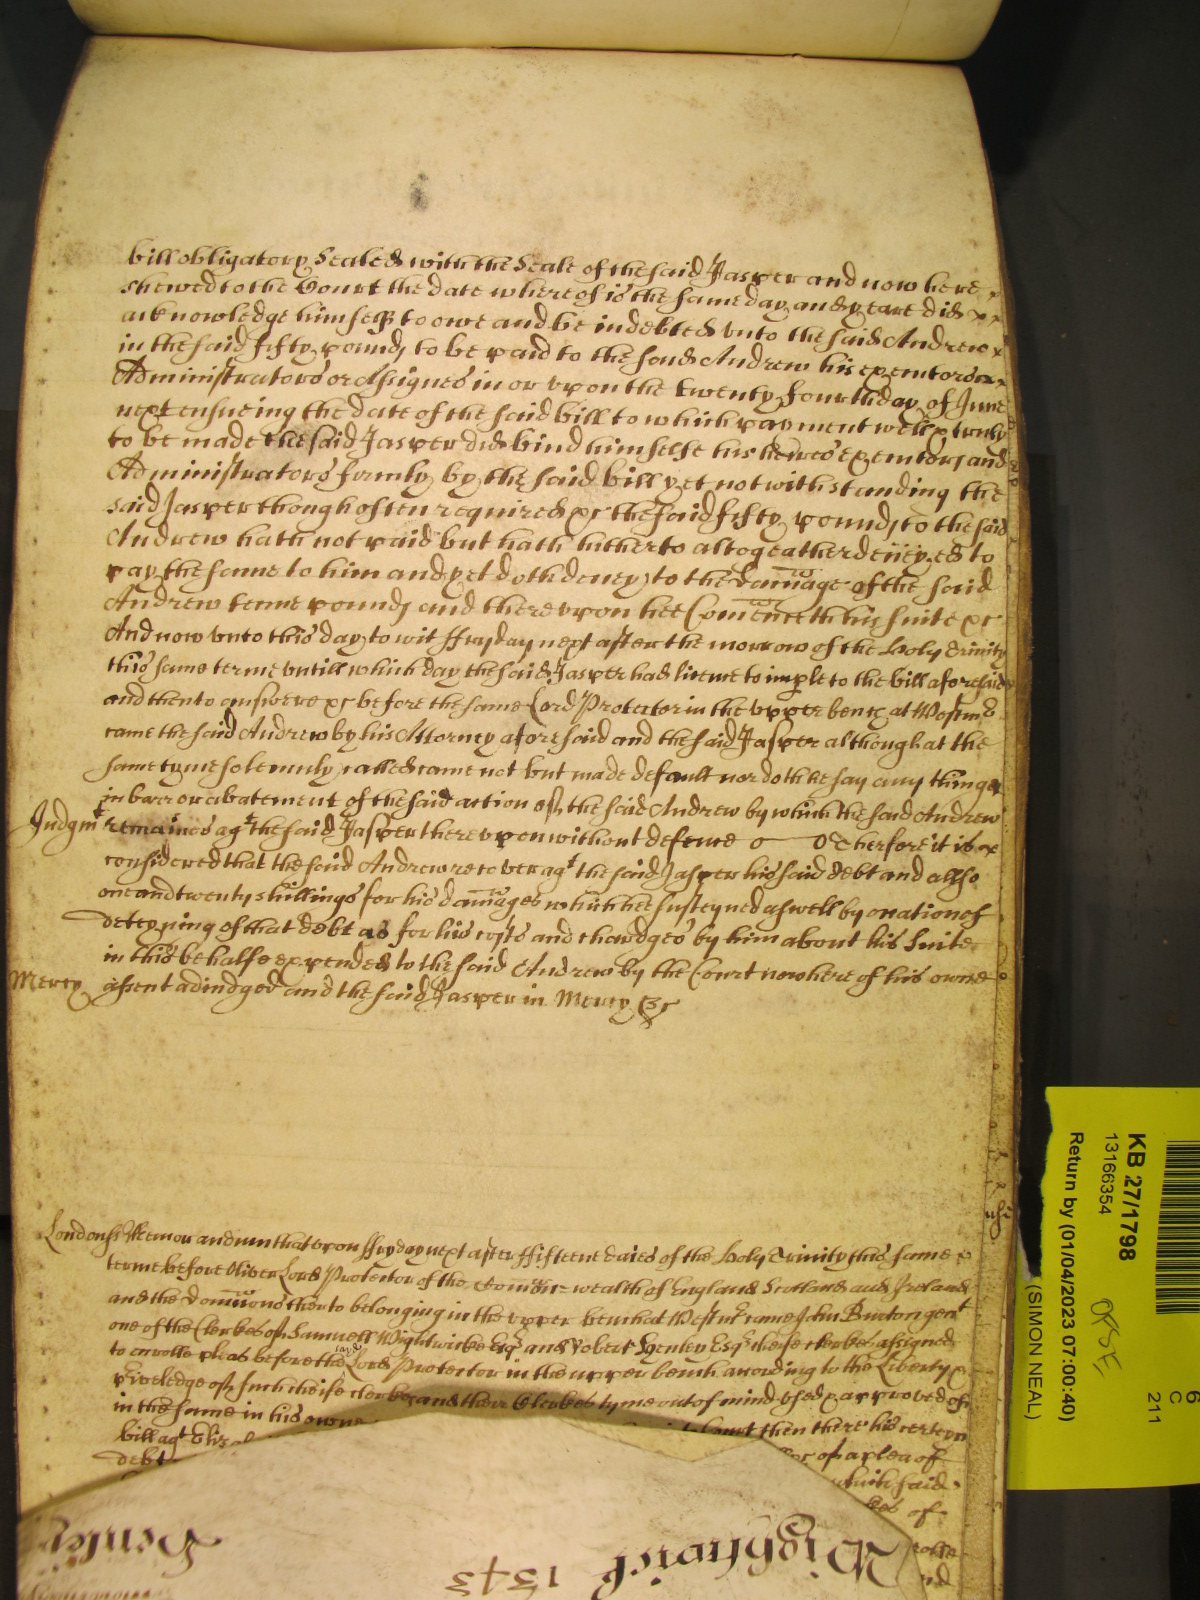 bill obligatory Sealed with the Seale of the said Jasper and now here
shewed to the Court the date whereof is the same day and yeare did
acknowledge himselfe to owe and be indebted vnto the said Andrew
in the said fifty pounds to be paid to the said Andrew his executors
Administrators or Assignes in or vpon the twenty fourth day of June
next ensueing the date of the said bill to which payment well & truly
to be made the said Jasper did bind himselfe his heires executors and
Administrators firmly by the said bill yet notwithstanding the
said Jasper though often required &c the said fifty pounds to the said
Andrew hath not paid but hath hitherto altogeather denyed to
pay the same to him and yet doth deney to the damage of the said
Andrew tenne pounds and therevpon hee Comenceth his suite &c
And now vnto this day to wit ffryday next after the morrow of the Holy Trinity
this same terme vntill which day the said Jasper had licence to imple to the bill aforesaid
and then to answere &c before the same Lord Protector in the vpper bench at Westmr
came the said Andrew by his Attorney aforesaid and the said Jasper although at the
same tyme solemnly called came not but made default nor doth he say any thinge
in barr or abatement of the said action of the said Andrew by which the said Andrew
Judgmt remaines agt the said Jasper therevpon without defence Therfore it is
considered that the said Andrew recover agt the said Jasper his said debt and allso
one and twenty shillings for his damages which hee susteyned aswell by ocation of
deteyning of that debt as for his costs and chardges by him about his Suite
in this behalfe expended to the said Andrew by the Court now here of his owne
Mercy assent adiudged and the said Jasper in Mercy &c
London ss Memorandum that vpon ffryday next after ffifteene daies of the Holy Trinity this same
terme before Oliver Lord Protector of the Comon-wealth of England Scotland and Ireland
and the Dominions therto belonging in the vpper bench at Westmr came John Burton gent
one of the Clerkes of Samuell Wightwicke Esqr and Robert Henley Esqr cheife clerkes assigned
to enrolle pleas before the said Lord Protector in the upper bench according to the Liberty &
Priveledge of such cheife clerkes and their Clerkes tyme out of mind vsed & approved of
in the same in his owne Court then there his certeyn
bill agt of a plea of
debt which said
of
Wightwick 1343 Henley
KB 27/1798
13166354
Return by (01/04/2023 07:00:40)
(SIMON NEAL)
6
C
211